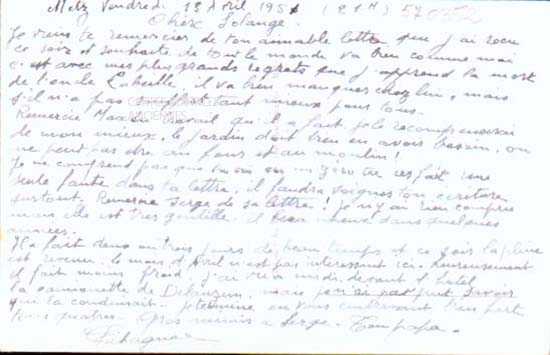 Metz Vendredi 13 Avril 195 (21H) 570352
Chère Solange.
Je viens te remercier de ton aimable lettre que j'ai reçu
ce soir et souhaite de tout le monde va bien comme moi
c'est avec mes plus grands regrets que j'apprend la mort
de l'oncle il va bien manquer chez lui, mais
s'il n'a pas souffert tant mieux pour tous.
Remercie travail qu'il a fait je le recompenserai
de mon mieux, le jardin doit bien en avoir besoin, on
ne peut pas être au four et au moulin!
Je ne comprend pas que tu as fait une
seule faute dans ta lettre, il faudra soigner ton écriture
surtout. Remercie Serge de sa lettre! je n'y ai rien compris
mais elle est très gentille. il fera mieux dans quelques
années.
Il a fait deux ou trois jours de beau temps et ce soir la pluie
est revenu, le mois d'Avril n'est pas interessant ici. heureusement
il fait moins froid, j'ai vu à midi devant l'hotel
la camionnette de mais je n'ai pas pu savoir
qui la conduisait. je termine en vous embrassant bien fort
tous quatre. Gros mimis à Serge. Ton papa.
CARTES POSTALES
ANCIENNES